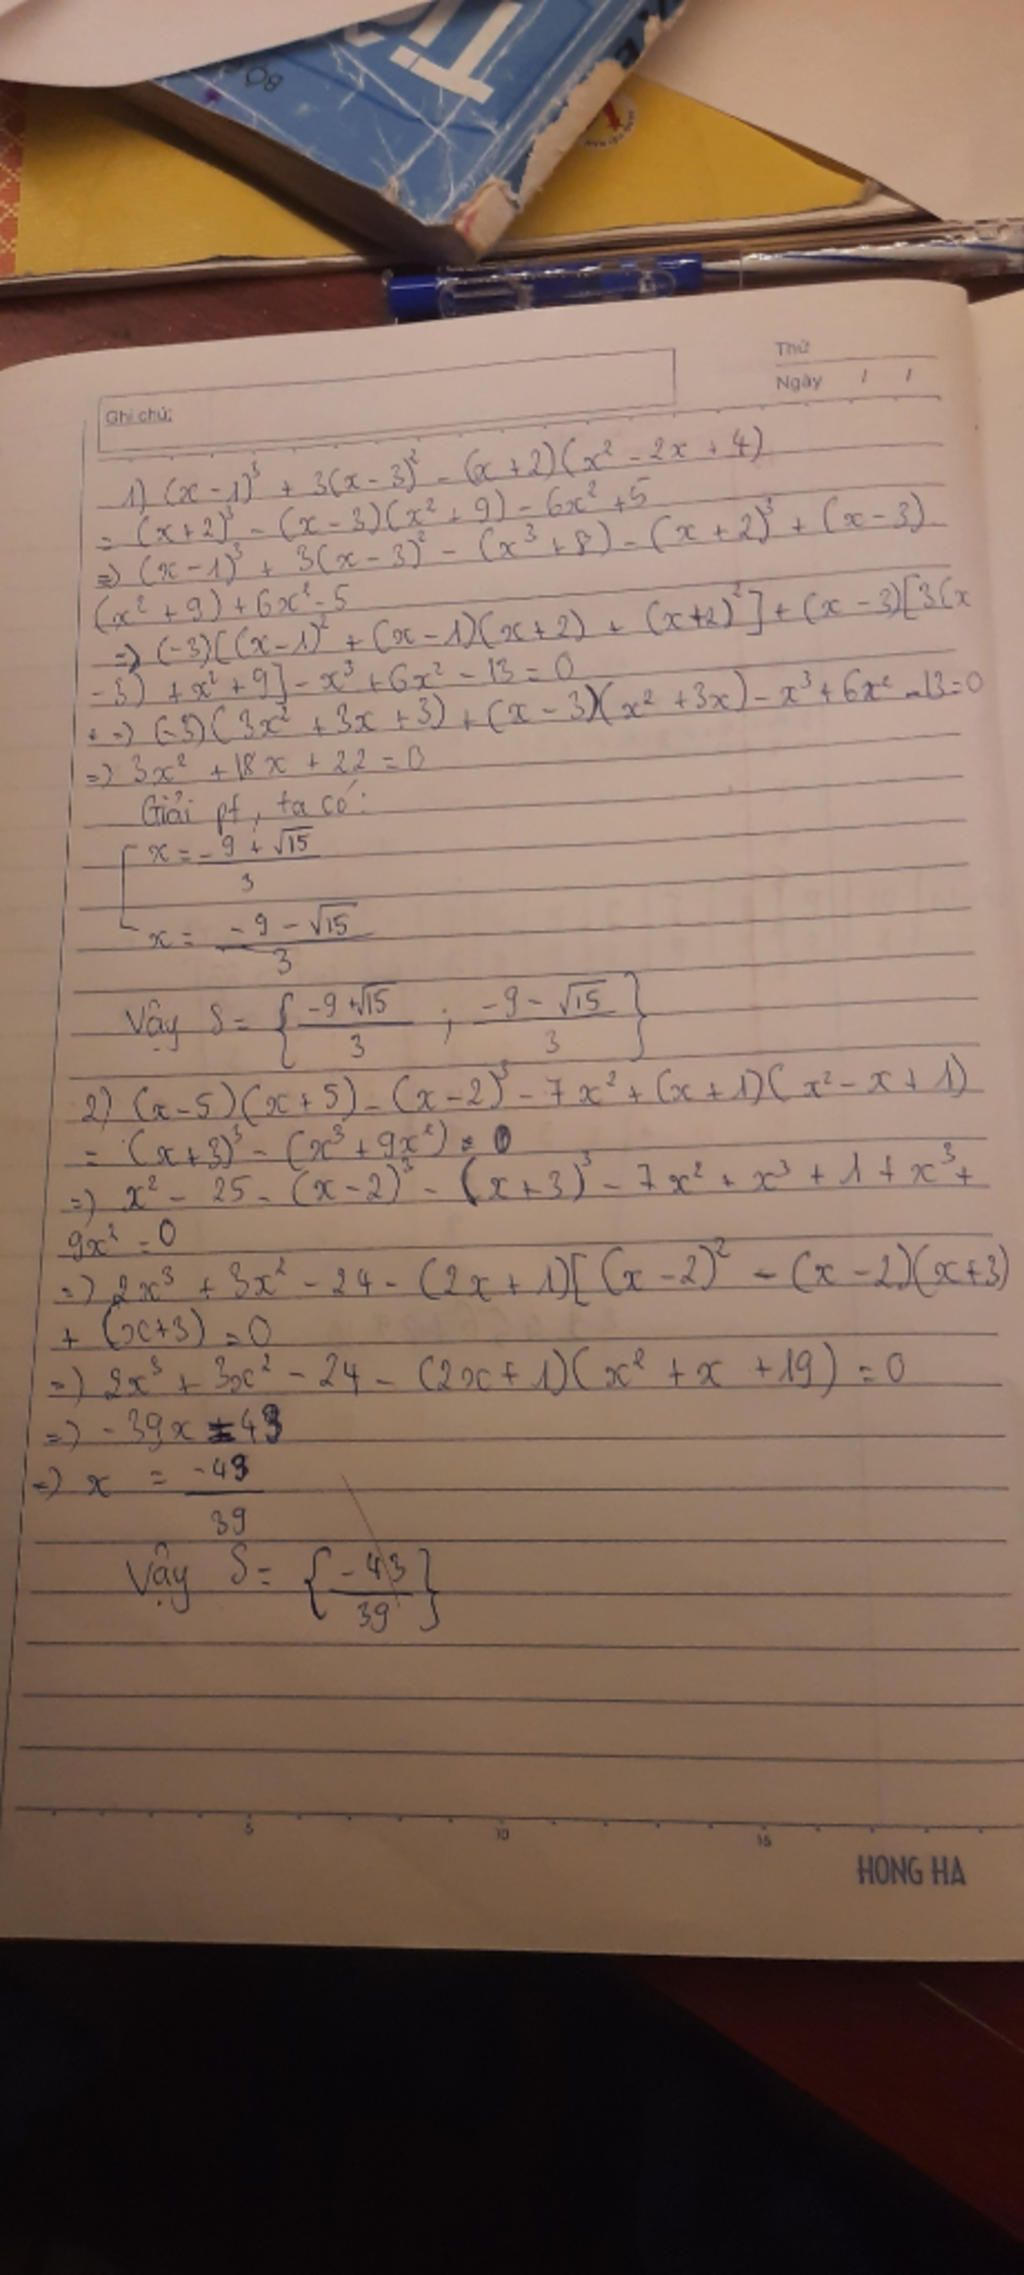 BỘ
Thứ
Ngày / /
Ghi chú:
1) (x-1)³ + 3(x-3)² - (x+2)(x² - 2x + 4)
= (x+2)³ - (x-3)(x² + 9) - 6x² + 5
=> (x-1)³ + 3(x-3)² - (x³ + 8) - (x+2)³ + (x-3)
(x² + 9) + 6x² - 5
=> (-3)[(x-1)² + (x-1)(x+2) + (x+2)²] + (x-3)[3(x
-3) + x² + 9] - x³ + 6x² - 13 = 0
=> (-3)(3x² + 3x + 3) + (x-3)(x² + 3x) - x³ + 6x² - 13 = 0
=> 3x² + 18x + 22 = 0
Giải pt, ta có:
x = -9 + √15
3
x = -9 - √15
3
Vậy S = { -9 + √15 / 3 ; -9 - √15 / 3 }
2) (x-5)(x+5) - (x-2)³ - 7x² + (x+1)(x² - x + 1)
= (x+3)³ - (x³ + 9x²)
=> x² - 25 - (x-2)³ - (x+3)³ - 7x² + x³ + 1 + x³ +
9x² = 0
=> 2x³ + 3x² - 24 - (2x+1)[(x-2)² - (x-2)(x+3)
+ (x+3) = 0
=> 2x³ + 3x² - 24 - (2x+1)(x² + x + 19) = 0
=> -39x = 43
=> x = -43
39
Vậy S = { -43 / 39 }
5 10 15
HONG HA